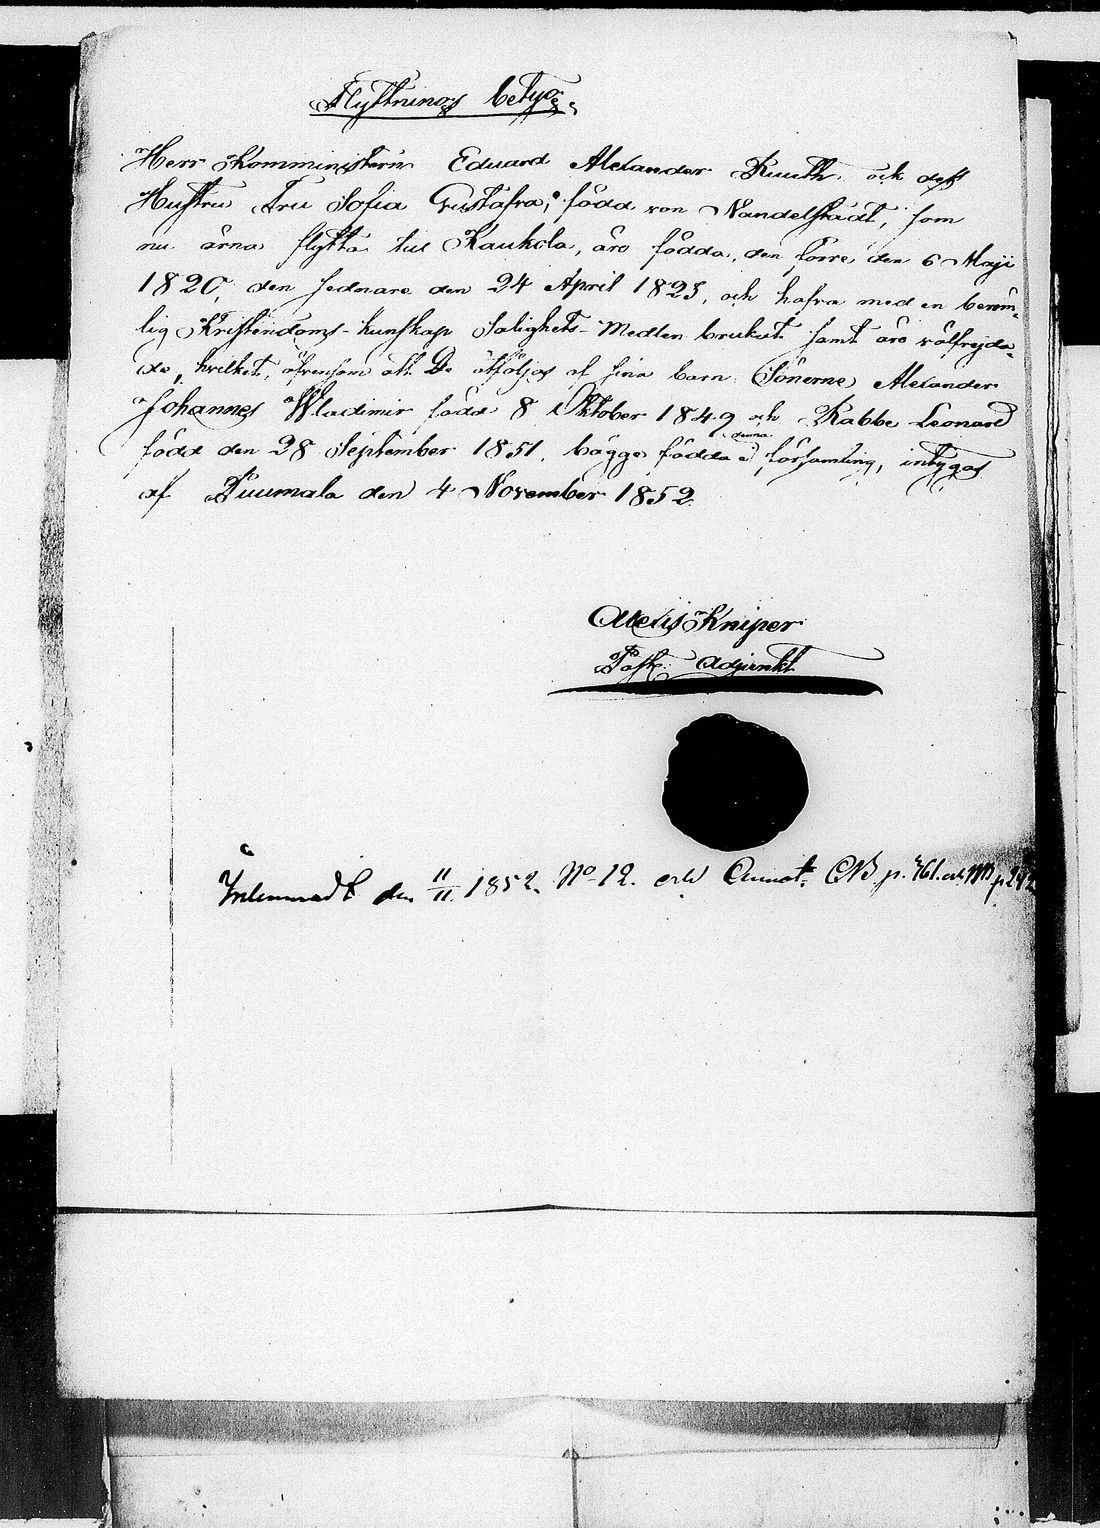 Flyttnings betyg.
Herr Komministern Eduard Alexander Ruuth och dess
Hustru Fru Sofia Gustafva, född von Nandelstadt, som
nu ärna flytta till Kaukola, äro födda, den förre den 6 Maji
1820, den sednare den 24 April 1823, och hafva med en beröm-
lig Kristendoms-kunskap Salighets-Medlen brukat samt äro välfrejda-
de, hvilket, äfvensom att De åtföljas af sina barn: Sönerne Alexander
Johannes Wladimir född 8 Oktober 1849 och Rabbe Leonard
född den 28 September 1851, bägge födda i denna församling, intygas
af Puumala den 4 November 1852.
Alexis Kniper
Past. Adjunkt
Inlemnadt den 11/11 1852. No 12. och Annot. CB p. 361. och MB p 292